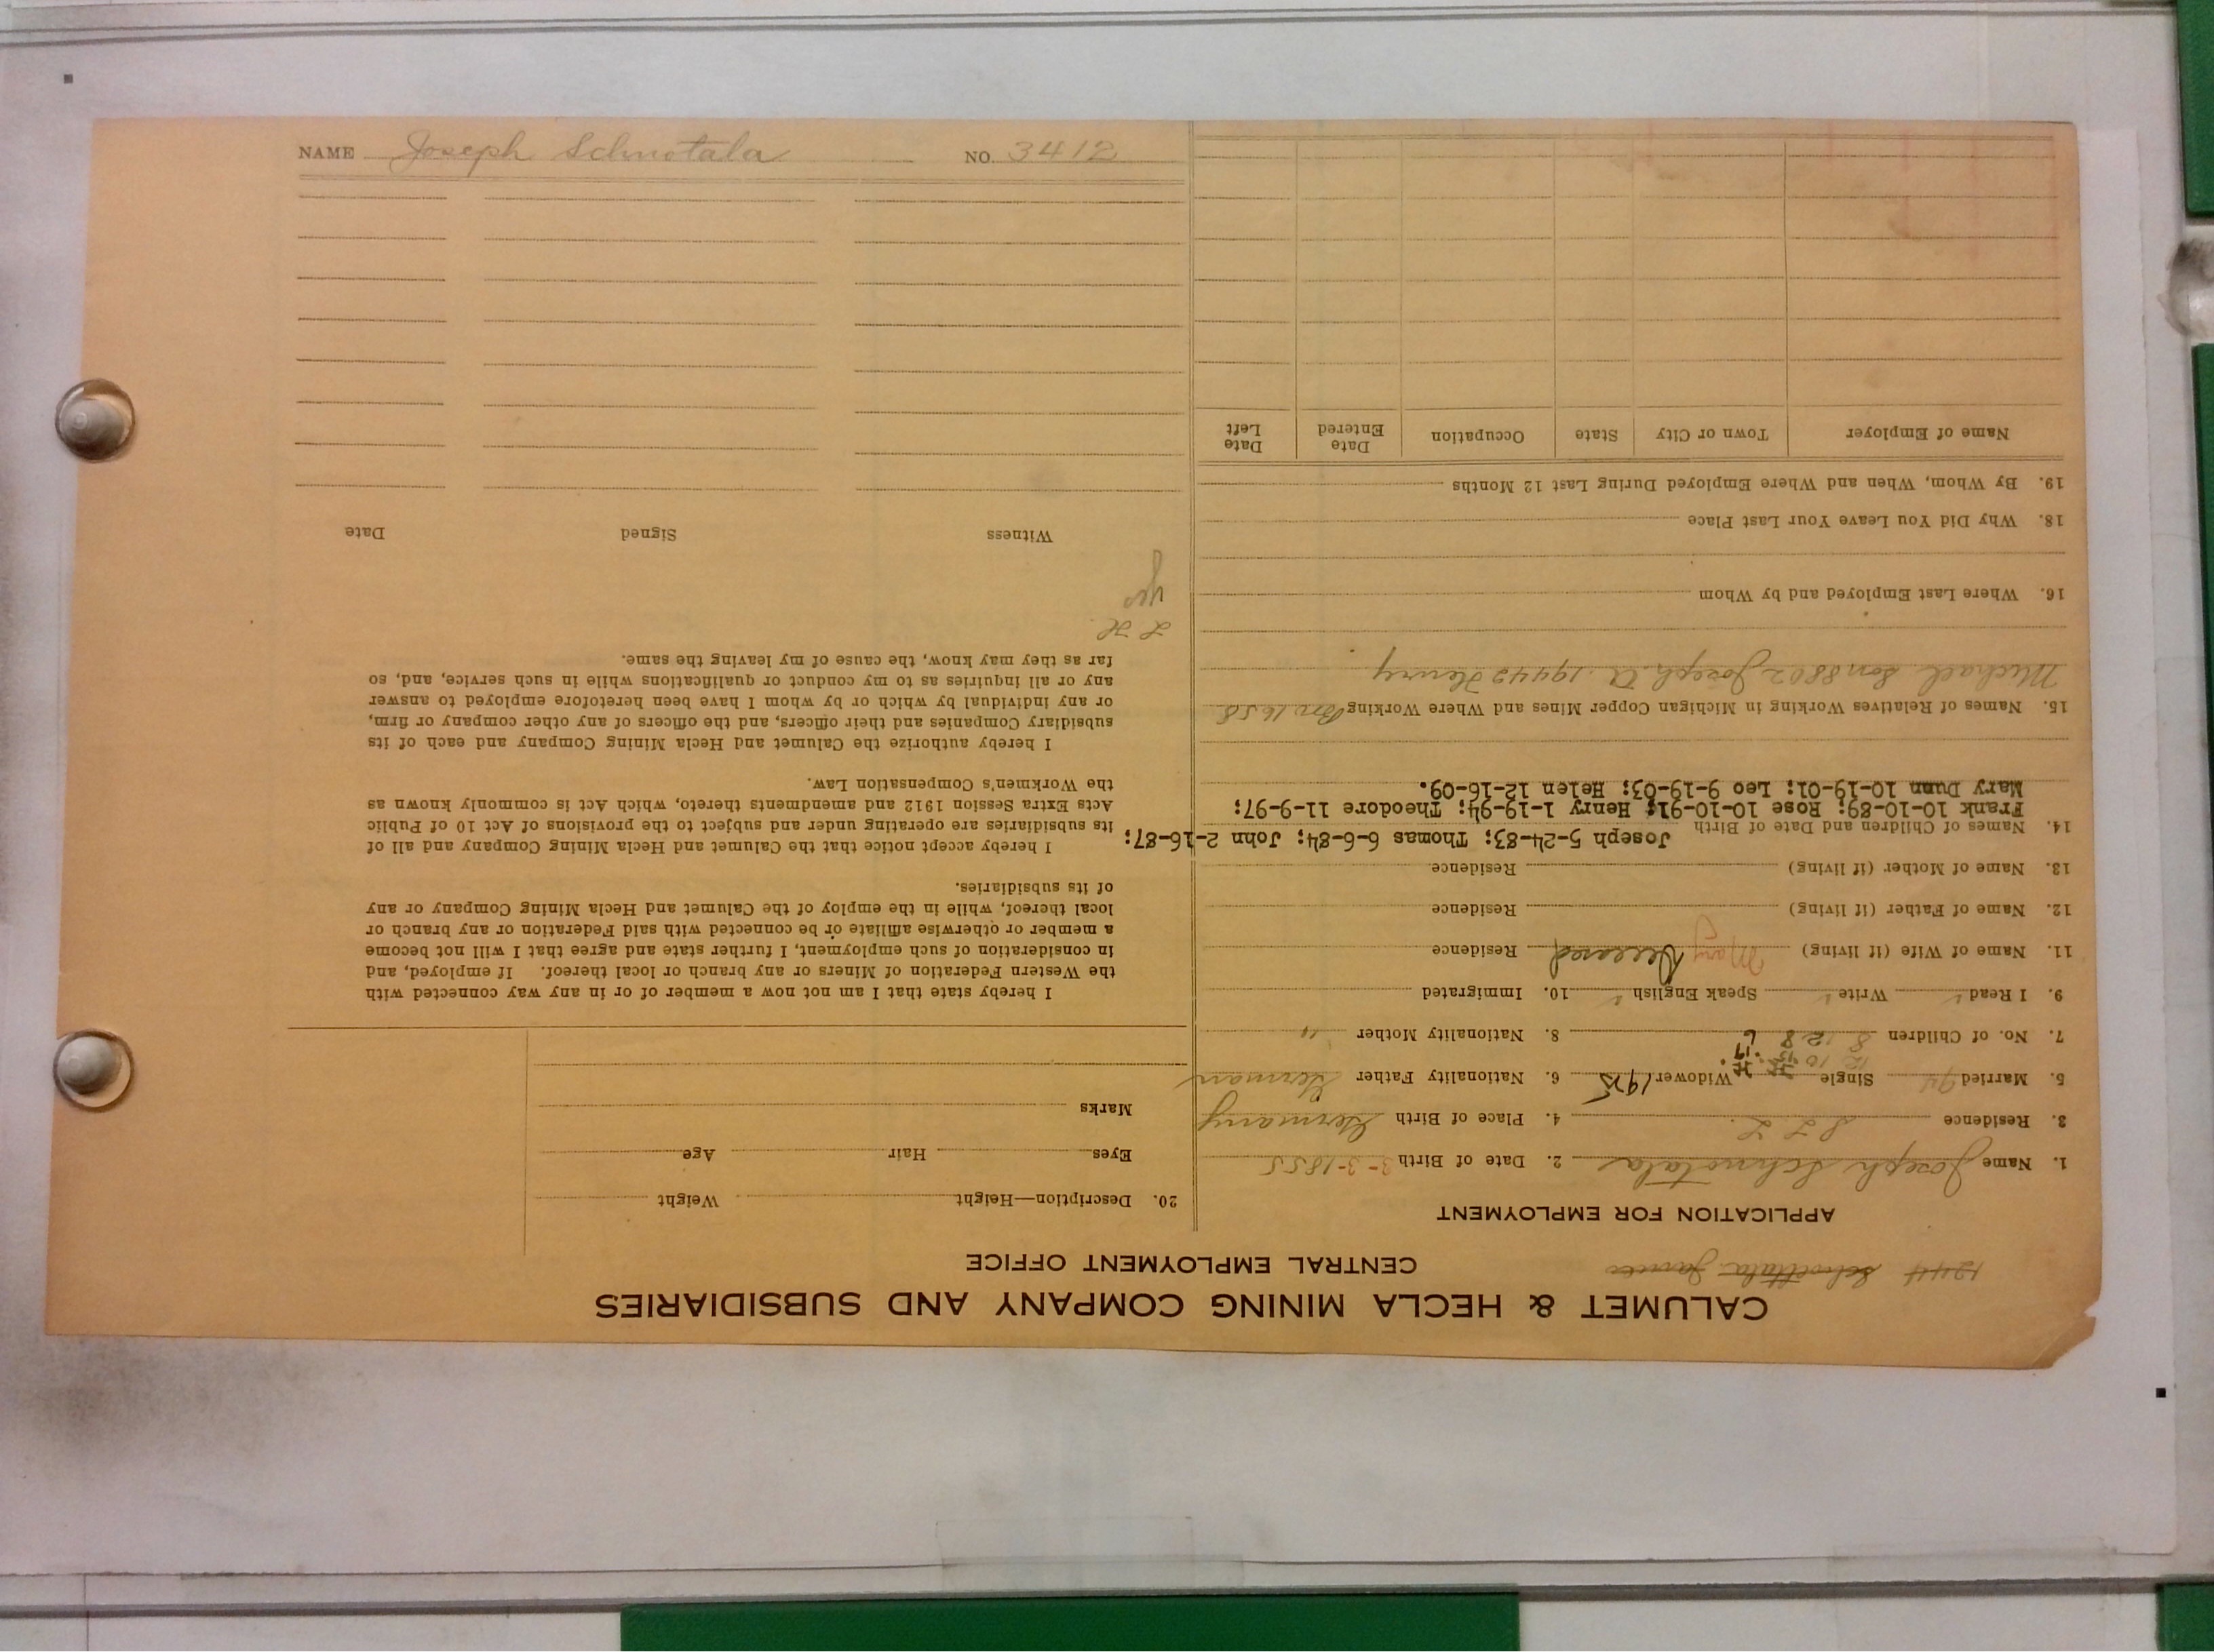 CALUMET & HECLA MINING COMPANY AND SUBSIDIARIES
CENTRAL EMPLOYMENT OFFICE
1244
APPLICATION FOR EMPLOYMENT
1. Name Joseph Schnotala 2. Date of Birth 3-3-1855
3. Residence 4. Place of Birth Germany
5. Married Single Widower 1925 6. Nationality Father German
7. No. of Children 8. Nationality Mother "
9. I Read Write Speak English 10. Immigrated
11. Name of Wife (if living) Mary Deceased Residence
12. Name of Father (if living) Residence
13. Name of Mother (if living) Residence
14. Names of Children and Date of Birth Joseph 5-24-83; Thomas 6-6-84; John 2-16-87;
Frank 10-10-89; Rose 10-10-91; Henry 1-19-94; Theodore 11-9-97;
Mary Dunn 10-19-01; Leo 9-19-03; Helen 12-16-09.
15. Names of Relatives Working in Michigan Copper Mines and Where Working Bro. 1658
Michael Son 8802 Joseph. A. 19442 Henry
16. Where Last Employed and by Whom
18. Why Did You Leave Your Last Place
19. By Whom, When and Where Employed During Last 12 Months
Name of Employer Town or City State Occupation Date Entered Date Left
20. Description—Height Weight
Eyes Hair Age
Marks
I hereby state that I am not now a member of or in any way connected with
the Western Federation of Miners or any branch or local thereof. If employed, and
in consideration of such employment, I further state and agree that I will not become
a member or otherwise affiliate or be connected with said Federation or any branch or
local thereof, while in the employ of the Calumet and Hecla Mining Company or any
of its subsidiaries.
I hereby accept notice that the Calumet and Hecla Mining Company and all of
its subsidiaries are operating under and subject to the provisions of Act 10 of Public
Acts Extra Session 1912 and amendments thereto, which Act is commonly known as
the Workmen's Compensation Law.
I hereby authorize the Calumet and Hecla Mining Company and each of its
subsidiary Companies and their officers, and the officers of any other company or firm,
or any individual by which or by whom I have been heretofore employed to answer
any or all inquiries as to my conduct or qualifications while in such service, and, so
far as they may know, the cause of my leaving the same.
Yes
Witness Signed Date
NAME Joseph Schnotala NO. 3412